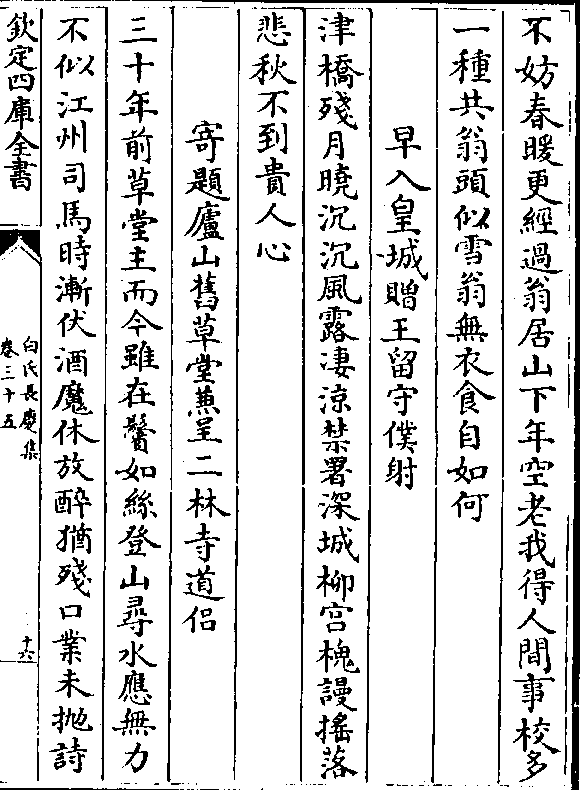 不妨春暖更經過翁居山下年空老我得人間事校多
一種共翁頭似雪翁無衣食自如何
早入皇城贈王留守僕射
津橋殘月曉沉沉風露凄涼禁署深城柳宫槐謾揺落
悲秋不到貴人心
寄題廬山舊草堂兼呈二林寺道侣
三十年前草堂主而今雖在鬢如絲登山尋水應無力
不似江州司馬時漸伏酒魔休放醉猶殘口業未抛詩
欽定四庫全書
白氏長慶集
卷三十五
十六